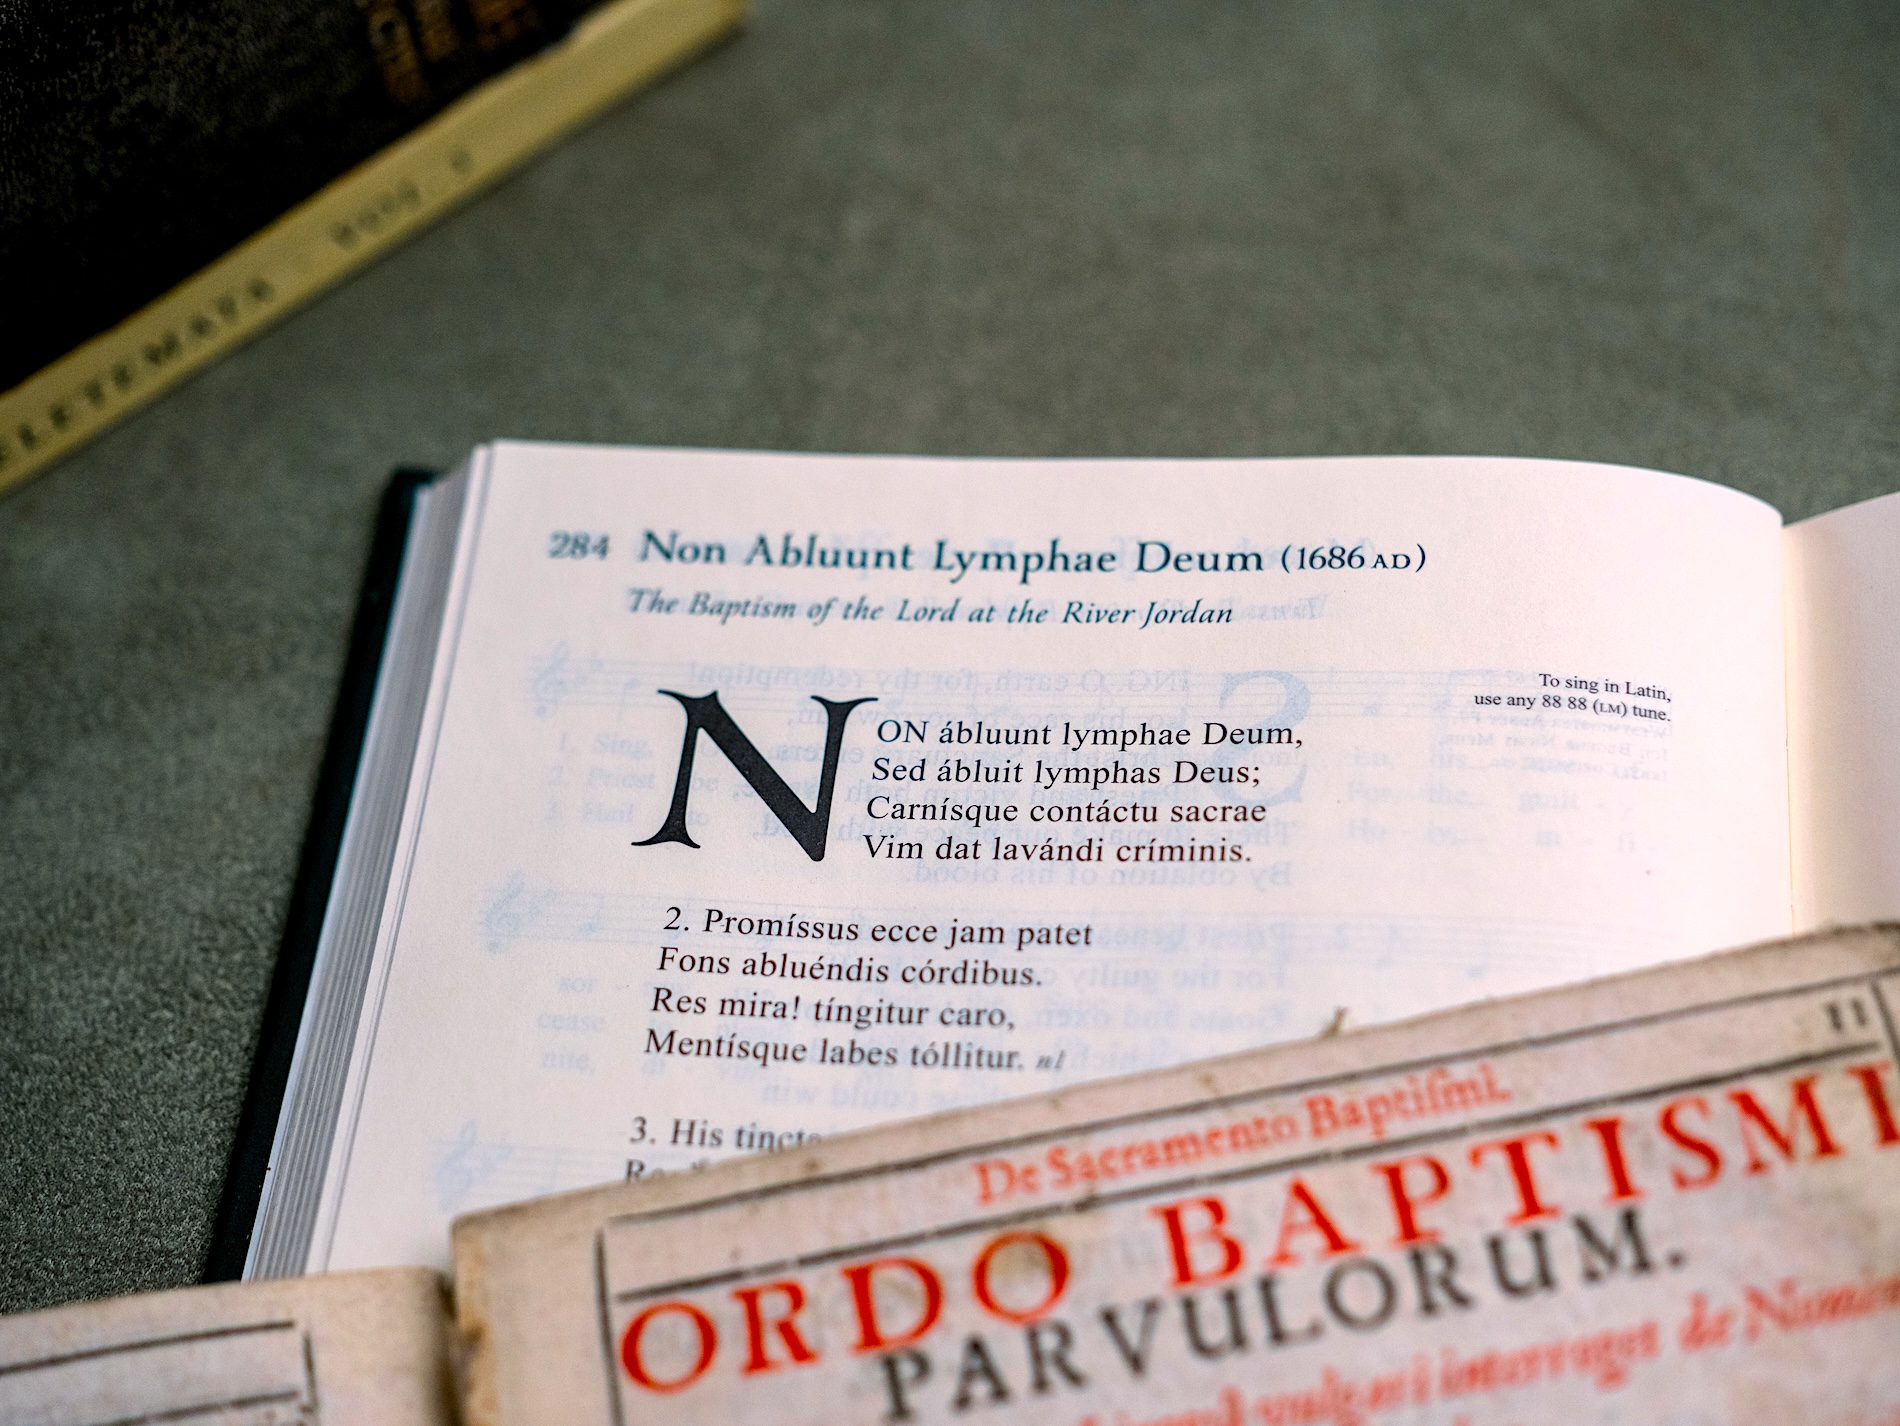 284 Non Abluunt Lymphae Deum (1686 AD)
The Baptism of the Lord at the River Jordan
To sing in Latin,
use any 88 88 (LM) tune.
NON ábluunt lymphae Deum,
Sed ábluit lymphas Deus;
Carnísque contáctu sacrae
Vim dat lavándi críminis.
2. Promíssus ecce jam patet
Fons abluéndis córdibus.
Res mira! tíngitur caro,
Mentísque labes tóllitur.
3. His
11
De Sacramento Baptiſmi.
ORDO BAPTISMI
PARVULORUM.
vulgari interroget de